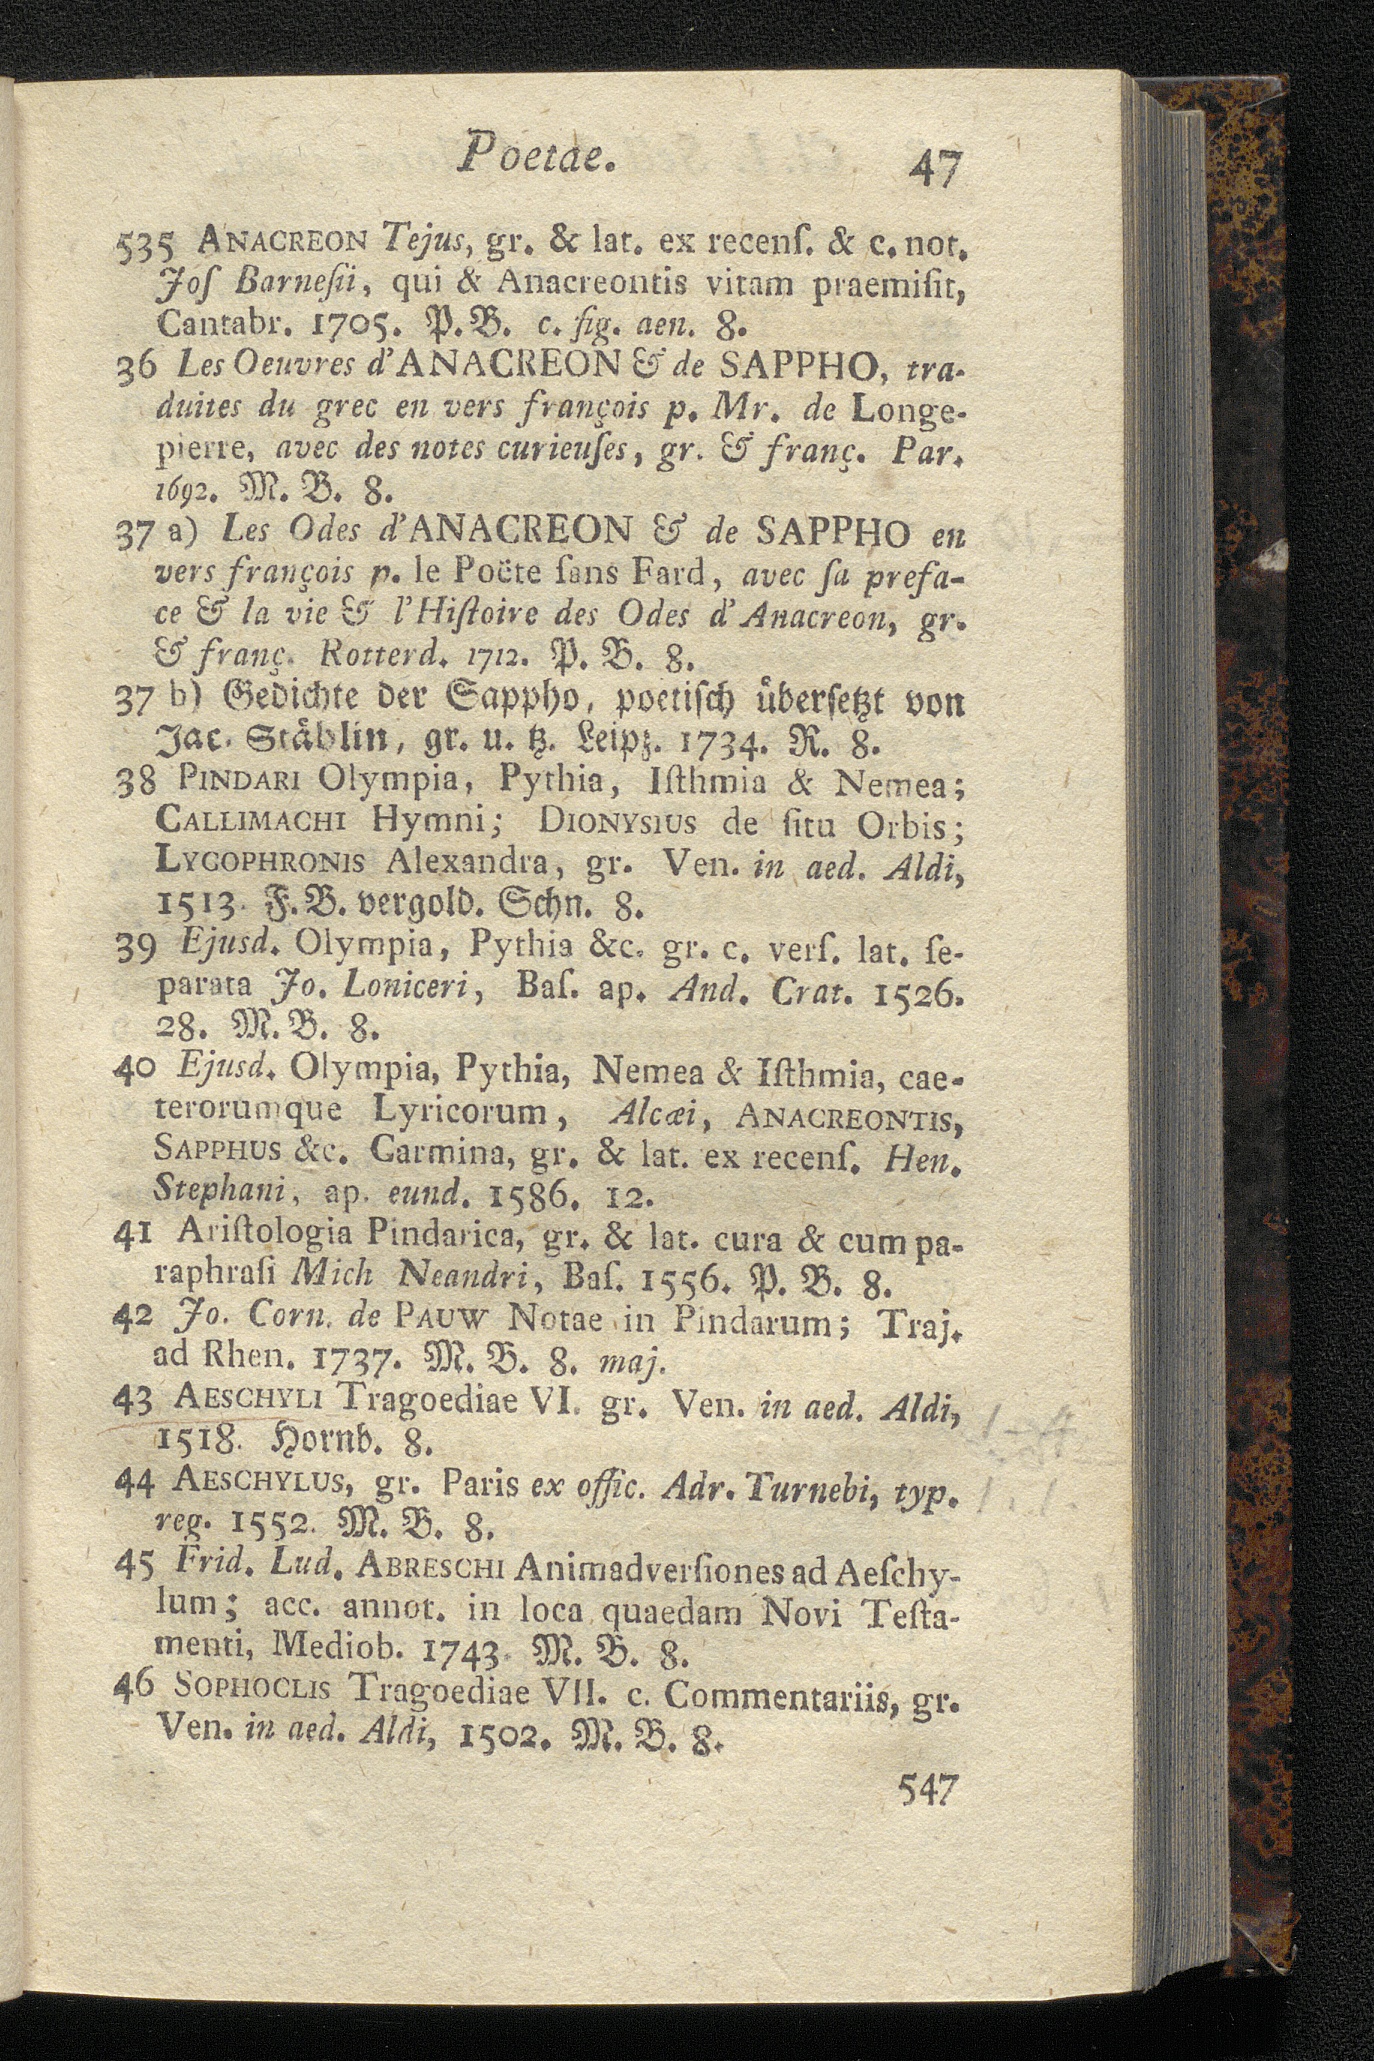 Poetae. 47
535 ANACREON Tejus, gr. & lat. ex recenſ. & c. not.
Joſ Barneſii, qui & Anacreontis vitam praemiſit,
Cantabr. 1705. P. B. c. fig. aen. 8.
36 Les Oeuvres d'ANACREON & de SAPPHO, tra-
duites du grec en vers françois p. Mr. de Longe-
pierre, avec des notes curieuſes, gr. & franç. Par.
1692. M. B. 8.
37 a) Les Odes d'ANACREON & de SAPPHO en
vers françois p. le Poëte ſans Fard, avec ſa prefa-
ce & la vie & l'Hiſtoire des Odes d'Anacreon, gr.
& franç. Rotterd. 1712. P. B. 8.
37 b) Gedichte der Sappho, poetiſch überſetzt von
Jac. Stählin, gr. u. tz. Leipz. 1734. R. 8.
38 PINDARI Olympia, Pythia, Iſthmia & Nemea;
CALLIMACHI Hymni; DIONYSIUS de ſitu Orbis;
LYCOPHRONIS Alexandra, gr. Ven. in aed. Aldi,
1513. F. B. vergold. Schn. 8.
39 Ejusd. Olympia, Pythia &c. gr. c. verſ. lat. ſe-
parata Jo. Loniceri, Baſ. ap. And. Crat. 1526.
28. M. B. 8.
40 Ejusd. Olympia, Pythia, Nemea & Iſthmia, cae-
terorumque Lyricorum, Alcæi, ANACREONTIS,
SAPPHUS &c. Carmina, gr. & lat. ex recenſ. Hen.
Stephani, ap. eund. 1586. 12.
41 Ariſtologia Pindarica, gr. & lat. cura & cum pa-
raphraſi Mich Neandri, Baſ. 1556. P. B. 8.
42 Jo. Corn. de PAUW Notae in Pindarum; Traj.
ad Rhen. 1737. M. B. 8. maj.
43 AESCHYLI Tragoediae VI. gr. Ven. in aed. Aldi,
1518. Hornb. 8.
44 AESCHYLUS, gr. Paris ex offic. Adr. Turnebi, typ.
reg. 1552. M. B. 8.
45 Frid. Lud. ABRESCHI Animadverſiones ad Aeſchy-
lum; acc. annot. in loca quaedam Novi Teſta-
menti, Mediob. 1743. M. B. 8.
46 SOPHOCLIS Tragoediae VII. c. Commentariis, gr.
Ven. in aed. Aldi, 1502. M. B. 8.
547